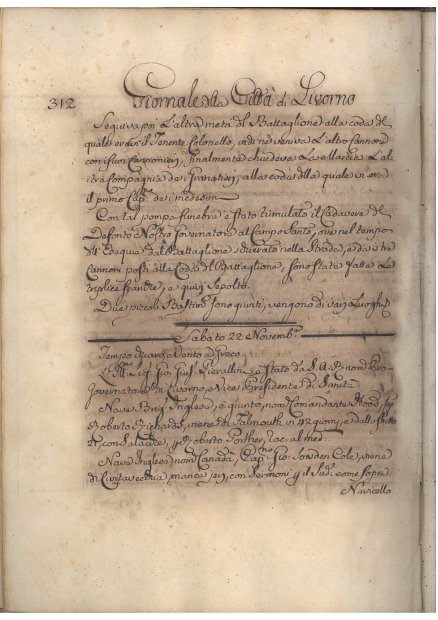 312 Giornale della Città di Livorno
Seguiva poi l'altra metà del Battaglione alla coda del
quale era il Tenente Colonello, indi ne veniva l'altro Cannone
con i suoi Cannonieri, finalmente chiudeva la l'al
tra Compagnia de Granatieri, alla coda della quale vi era
il primo Cap: de medesimi.
Con tal pompa funebre è stato tumulato il Cadavere del
Defonto Nostro Governatore al Campo Santo, ove nel tempo
dell' Esequie dal Battaglione nella Strada, e da tre
Cannoni posti alla Coda del Battaglione, sono state fatte le
triplice scariche, e quivi sepolto.
Due piccoli Bastim: sono giunti, vengono di varj Luoghi
Sabato 22 Novemb:
Tempo Vento a Greco.
Sig: Gio: Pierallini è stato da S.A.R. nom: Pro-
Governatore di Livorno, e Vice Presidente di Sanità
Nave Brig: Inglese, è giunto, nom: Comandante Hood,
Roberto Richards, viene di Falmouth in 42 giorni, e dallo stretto
con Salacche, p. Roberto Porther, rac: al med:
Nave Inglese, nom: Canadà, Cap: Gio: Sowden Cole, viene
di Civitavecchia, manca jeri, con Sermoni p. il Sud: come sopra
Navicello